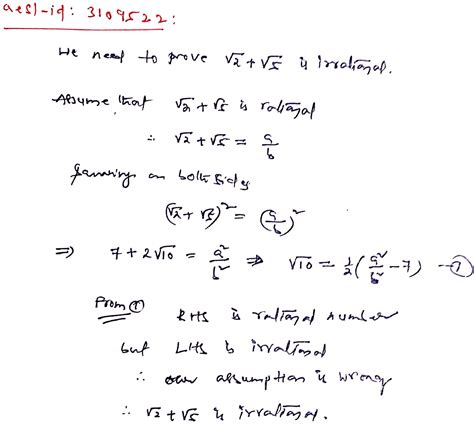 aesl-id: 3109522:
We need to prove √2 + √5 is irrational.
Assume that √2 + √5 is rational
∴ √2 + √5 = a/b
Squaring on both sides
(√2 + √5)² = (a/b)²
⇒ 7 + 2√10 = a²/b² ⇒ √10 = ½(a²/b² − 7) —①
From ①
RHS is rational number
but LHS is irrational
∴ our assumption is wrong
∴ √2 + √5 is irrational.